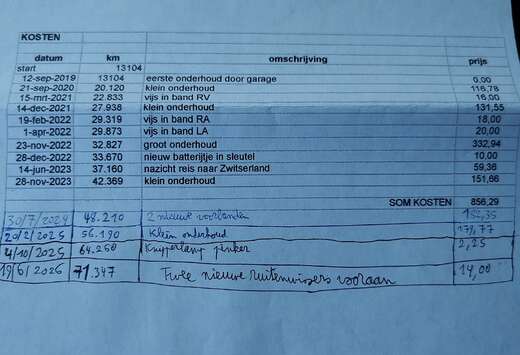 KOSTEN
datum km omschrijving prijs
start 13104
12-sep-2019 13104 eerste onderhoud door garage 0,00
21-sep-2020 20.120 klein onderhoud 116,78
15-mrt-2021 22.833 vijs in band RV 16,00
14-dec-2021 27.938 klein onderhoud 131,55
19-feb-2022 29.319 vijs in band RA 18,00
1-apr-2022 29.873 vijs in band LA 20,00
23-nov-2022 32.827 groot onderhoud 332,94
28-dec-2022 33.670 nieuw batterijtje in sleutel 10,00
14-jun-2023 37.160 nazicht reis naar Zwitserland 59,36
28-nov-2023 42.369 klein onderhoud 151,66
SOM KOSTEN 856,29
30/7/2024 48.210 2 nieuwe voorbanden
20/2/2025 56.190 Klein onderhoud
4/10/2025 64.250 Knipperlamp pinker 2,25
19/6/2026 71.347 Twee nieuwe ruitenwissers vooraan 14,00